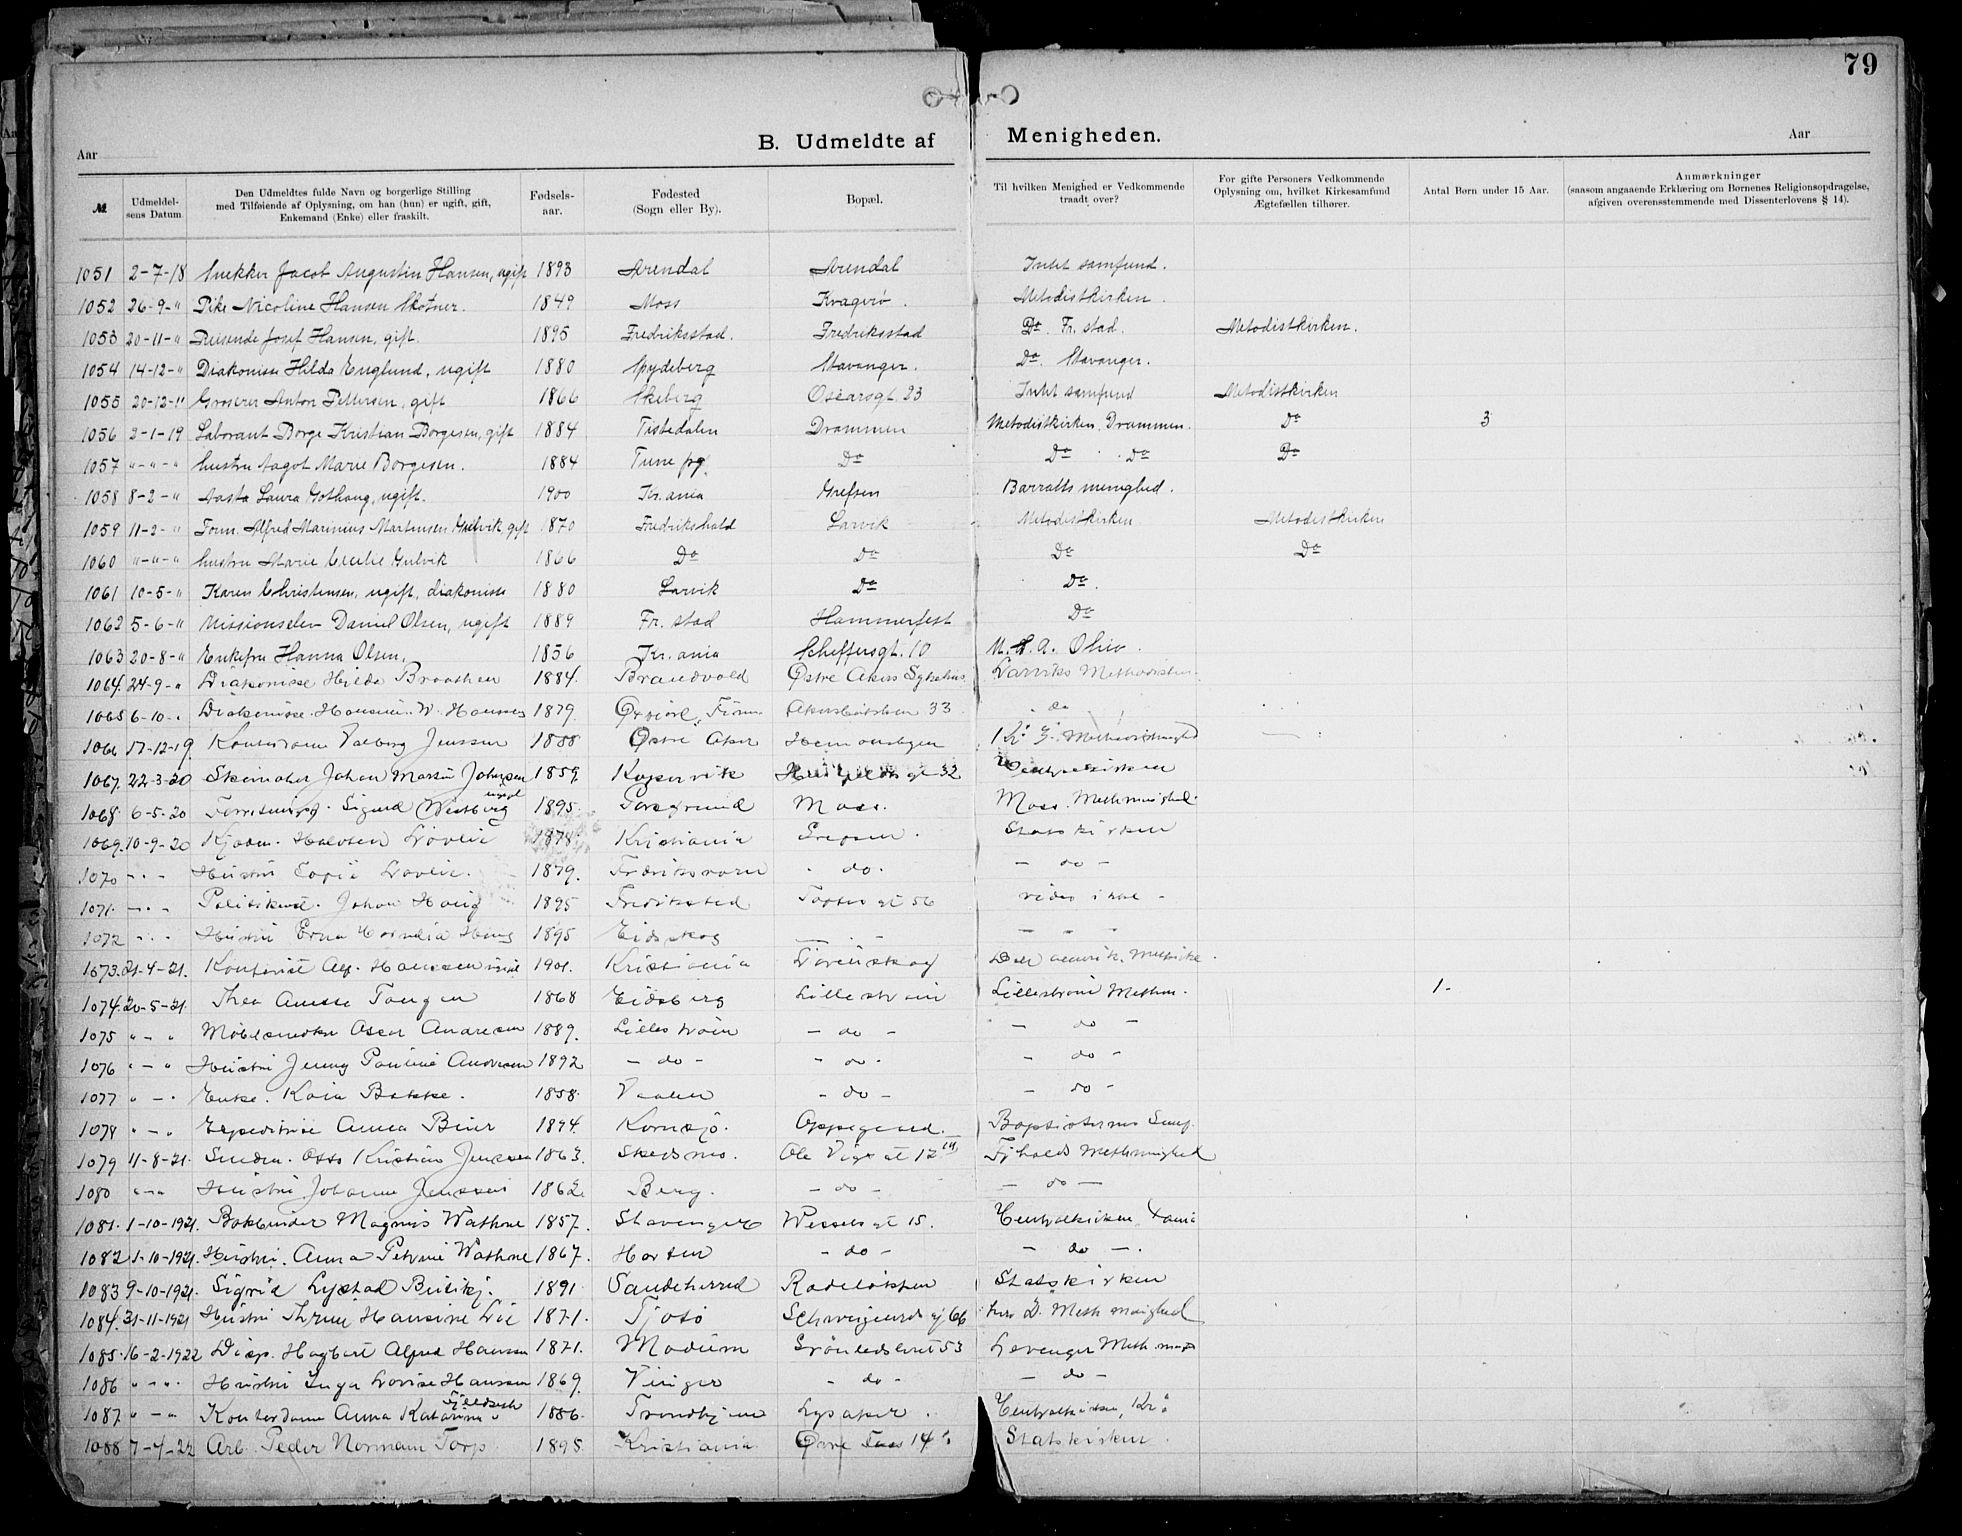 79
B. Udmeldte af Menigheden.
Aar
Aar
№
Udmeldel-
sens Datum
Den Udmeldtes fulde Navn og borgerlige Stilling
med Tilføiende af Oplysning, om han (hun) er ugift, gift,
Enkemand (Enke) eller fraskilt.
Fødsels-
aar.
Fødested
(Sogn eller By).
Bopæl.
Til hvilken Menighed er Vedkommende
traadt over?
For gifte Personers Vedkommende
Oplysning om, hvilket Kirkesamfund
Ægtefællen tilhører.
Antal Børn under 15 Aar.
Anmærkninger
(saasom angaaende Erklæring om Børnenes Religionsopdragelse,
afgiven overensstemmende med Dissenterlovens § 14).
1051 2-7-18 Jacob Augustin Hansen, ugift 1893 Arendal Arendal Intet samfund.
1052 26-9-" Pike Nicoline Hansen Skotner. 1849 Moss Kragerø. Metodistkirken.
1053 20-11-" Reisende Josef Hansen, gift. 1895 Fredriksstad. Fredriksstad Do. Fr. stad. Metodistkirken.
1054 14-12-" Diakonisse Hilda Englund, ugift 1880 Spydeberg Stavanger. Do. Stavanger.
1055 20-12-" Groserer Anton Pettersen, gift 1866 Skeberg Oscarsgt. 23 Intet samfund Metodistkirken
1056 2-1-19 Laborant Borge Kristian Borgesen, gift 1884 Tistedalen Drammen Metodistkirken, Drammen. Do 3
1057 "-"-" Hustru Aagot Marie Borgesen. 1884 Tune pg. Do Do Do Do
1058 8-2-" Aasta Laura Gothaug, ugift. 1900 Kr.ania Grefsen Barratts menighed.
1059 11-2-" Form. Alfred Marinius Martensen Gulvik gift 1870 Fredrikshald Larvik Metodistkirken Metodistkirken
1060 "-"-" Hustru Marie Cecilie Gulvik 1866 Do Do Do Do
1061 10-5-" Karen Christensen, ugift, diakonisse 1880 Larvik Do Do.
1062 5-6-" Missionselev Daniel Olsen, ugift 1889 Fr. stad Hammerfest Do
1063 20-8-" Enkefru Hanna Olsen, 1856 Kr.ania Scheffersgt. 10 Ohio.
1064. 24-9-" Diakonisse Hilda Braathen 1884. Brandvold Østre Akers Sykehus Larviks Methodistkn.
1065 6-10-. Diakonisse. W. Hansen 1879. Finm 33 do
1066 17-12-19. Kontordame Valborg Jenssen 1888 Østre Aker
1067. 22-3-20 Skomaker Johan Martin Johnsen 1859 Kopervik 32 Centralkirken
1068. 6-5-20 Sigurd Westberg ugift 1895. Porsgrund Moss. Moss. Meth.menighed.
1069. 10-9-20 Kjøbm. Halvdan Løvlie 1878. Kristiania Grefsen. Statskirken
1070 - - - Hustru Sofie Løvlie. 1879. Fredriksværn do. - do -
1071. -.-. Johan Haug 1895 Fredrikstad Toftes gt 56
1072 -.-. Hustru Erna Cornelia Haug 1895 Eidskog - - - -
1073. 21-4-21. Kontorist Alf. Hanssen ugift 1901. Kristiania Lørenskog
1074. 20-5-21. Thea Amesse Tangen 1868 Eidsberg Lillestrøm Lillestrøm Methm. 1-
1075 "-" Møbelsnedker Oscar Andresen 1889. Lillestrøm - do - - do -
1076 "-" Hustru Jenny Pauline Andresen 1892 - do - - do - - do -
1077 "-. Enke. Kaia Bakke. 1858. Vaaler - do - - do -
1078 "-" Anna Bier 1894. Kornsjø. Oppegaard. Baptisternes Smf.
1079 11-8-21. Snedk. Otto Kristian Jenssen 1863. Skedsmo. Ole Vigs gt 12 III Fr.halds Methmenighed
1080 "-" Hustru Johanne Jenssen 1862. Berg. - do - - do -
1081. 1-10-1921. Bokbinder Magnus Wathne 1857. Stavanger Wessels gt 15. Centralkirken, Xania
1082 1-10-1921. Hustru. Anna Petrine Wathne 1867. Horten - do - - do -.
1083 9-10-1921. Sigrid Lystad 1891 Sandeherred Rodeløkken Statskirken
1084. 21-11-1921 Hustru Hansine Lie 1871. Tjøtø Schweigaards gt 66 Meth menighed
1085. 16-2-1922 Disp. Hagbart Alfred Hanssen 1871. Modum Grønlandsleret 53 Levanger Meth. men
1086 "-". Hustru Inga Lovise Hanssen 1869. Vinger - do - - do -
1087 "-" Kontordame Anna Katarina 1886. Trondhjem Lysaker. Centralkirken, Kr.a
1088 7-4-22 Arb. Peder Normann Torp 1898. Kristiania 14 Statskirken.